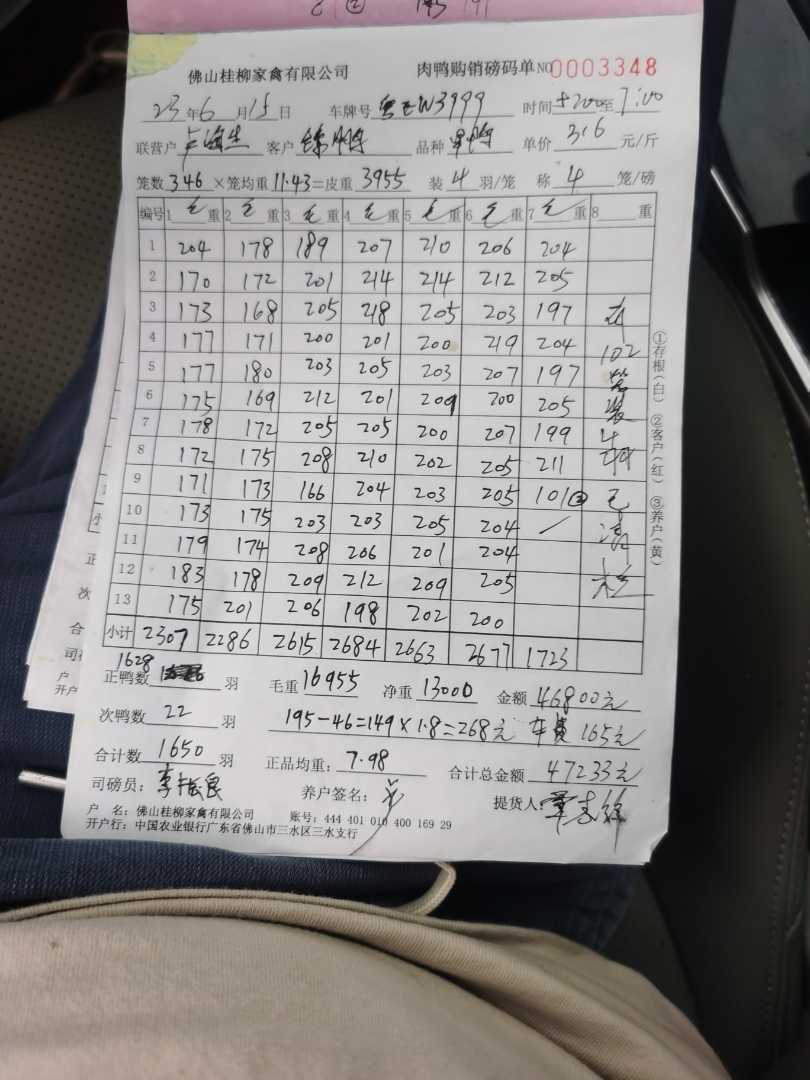 佛山桂柳家禽有限公司 肉鸭购销磅码单 NO 0003348
23年6月15日 车牌号 粤EW3999 时间 至7:00
联营户 客户 品种 单价 3.6 元/斤
笼数 346 ×笼均重 11.43 =皮重 3955 装 4 羽/笼 称 4 笼/磅
编号 1 毛 重 2 毛 重 3 毛 重 4 毛 重 5 毛 重 6 毛 重 7 毛 重 8 重
1 204 178 189 207 210 206 204
2 170 172 201 214 214 212 205
3 173 168 205 218 205 203 197
4 177 171 200 201 200 219 204
5 177 180 203 205 203 207 197
6 175 169 212 201 209 200 205
7 178 172 205 205 200 207 199
8 172 175 208 210 202 205 211
9 171 173 166 204 203 205 101②
10 173 175 203 203 205 204 /
11 179 174 208 206 201 204
12 183 178 209 212 209 205
13 175 201 206 198 202 200
小计 2307 2286 2615 2684 2663 2677 1723
102
①存根(白) ②客户(红) ③养户(黄)
1628
正鸭数 羽 毛重 16955 净重 13000 金额 46800元
次鸭数 22 羽 195-46=149×1.8=268元 车费 165元
合计数 1650 羽 正品均重: 7.98 合计总金额 47233元
司磅员: 养户签名: 提货人:
户 名: 佛山桂柳家禽有限公司 账号: 444 401 010 400 169 29
开户行: 中国农业银行广东省佛山市三水区三水支行